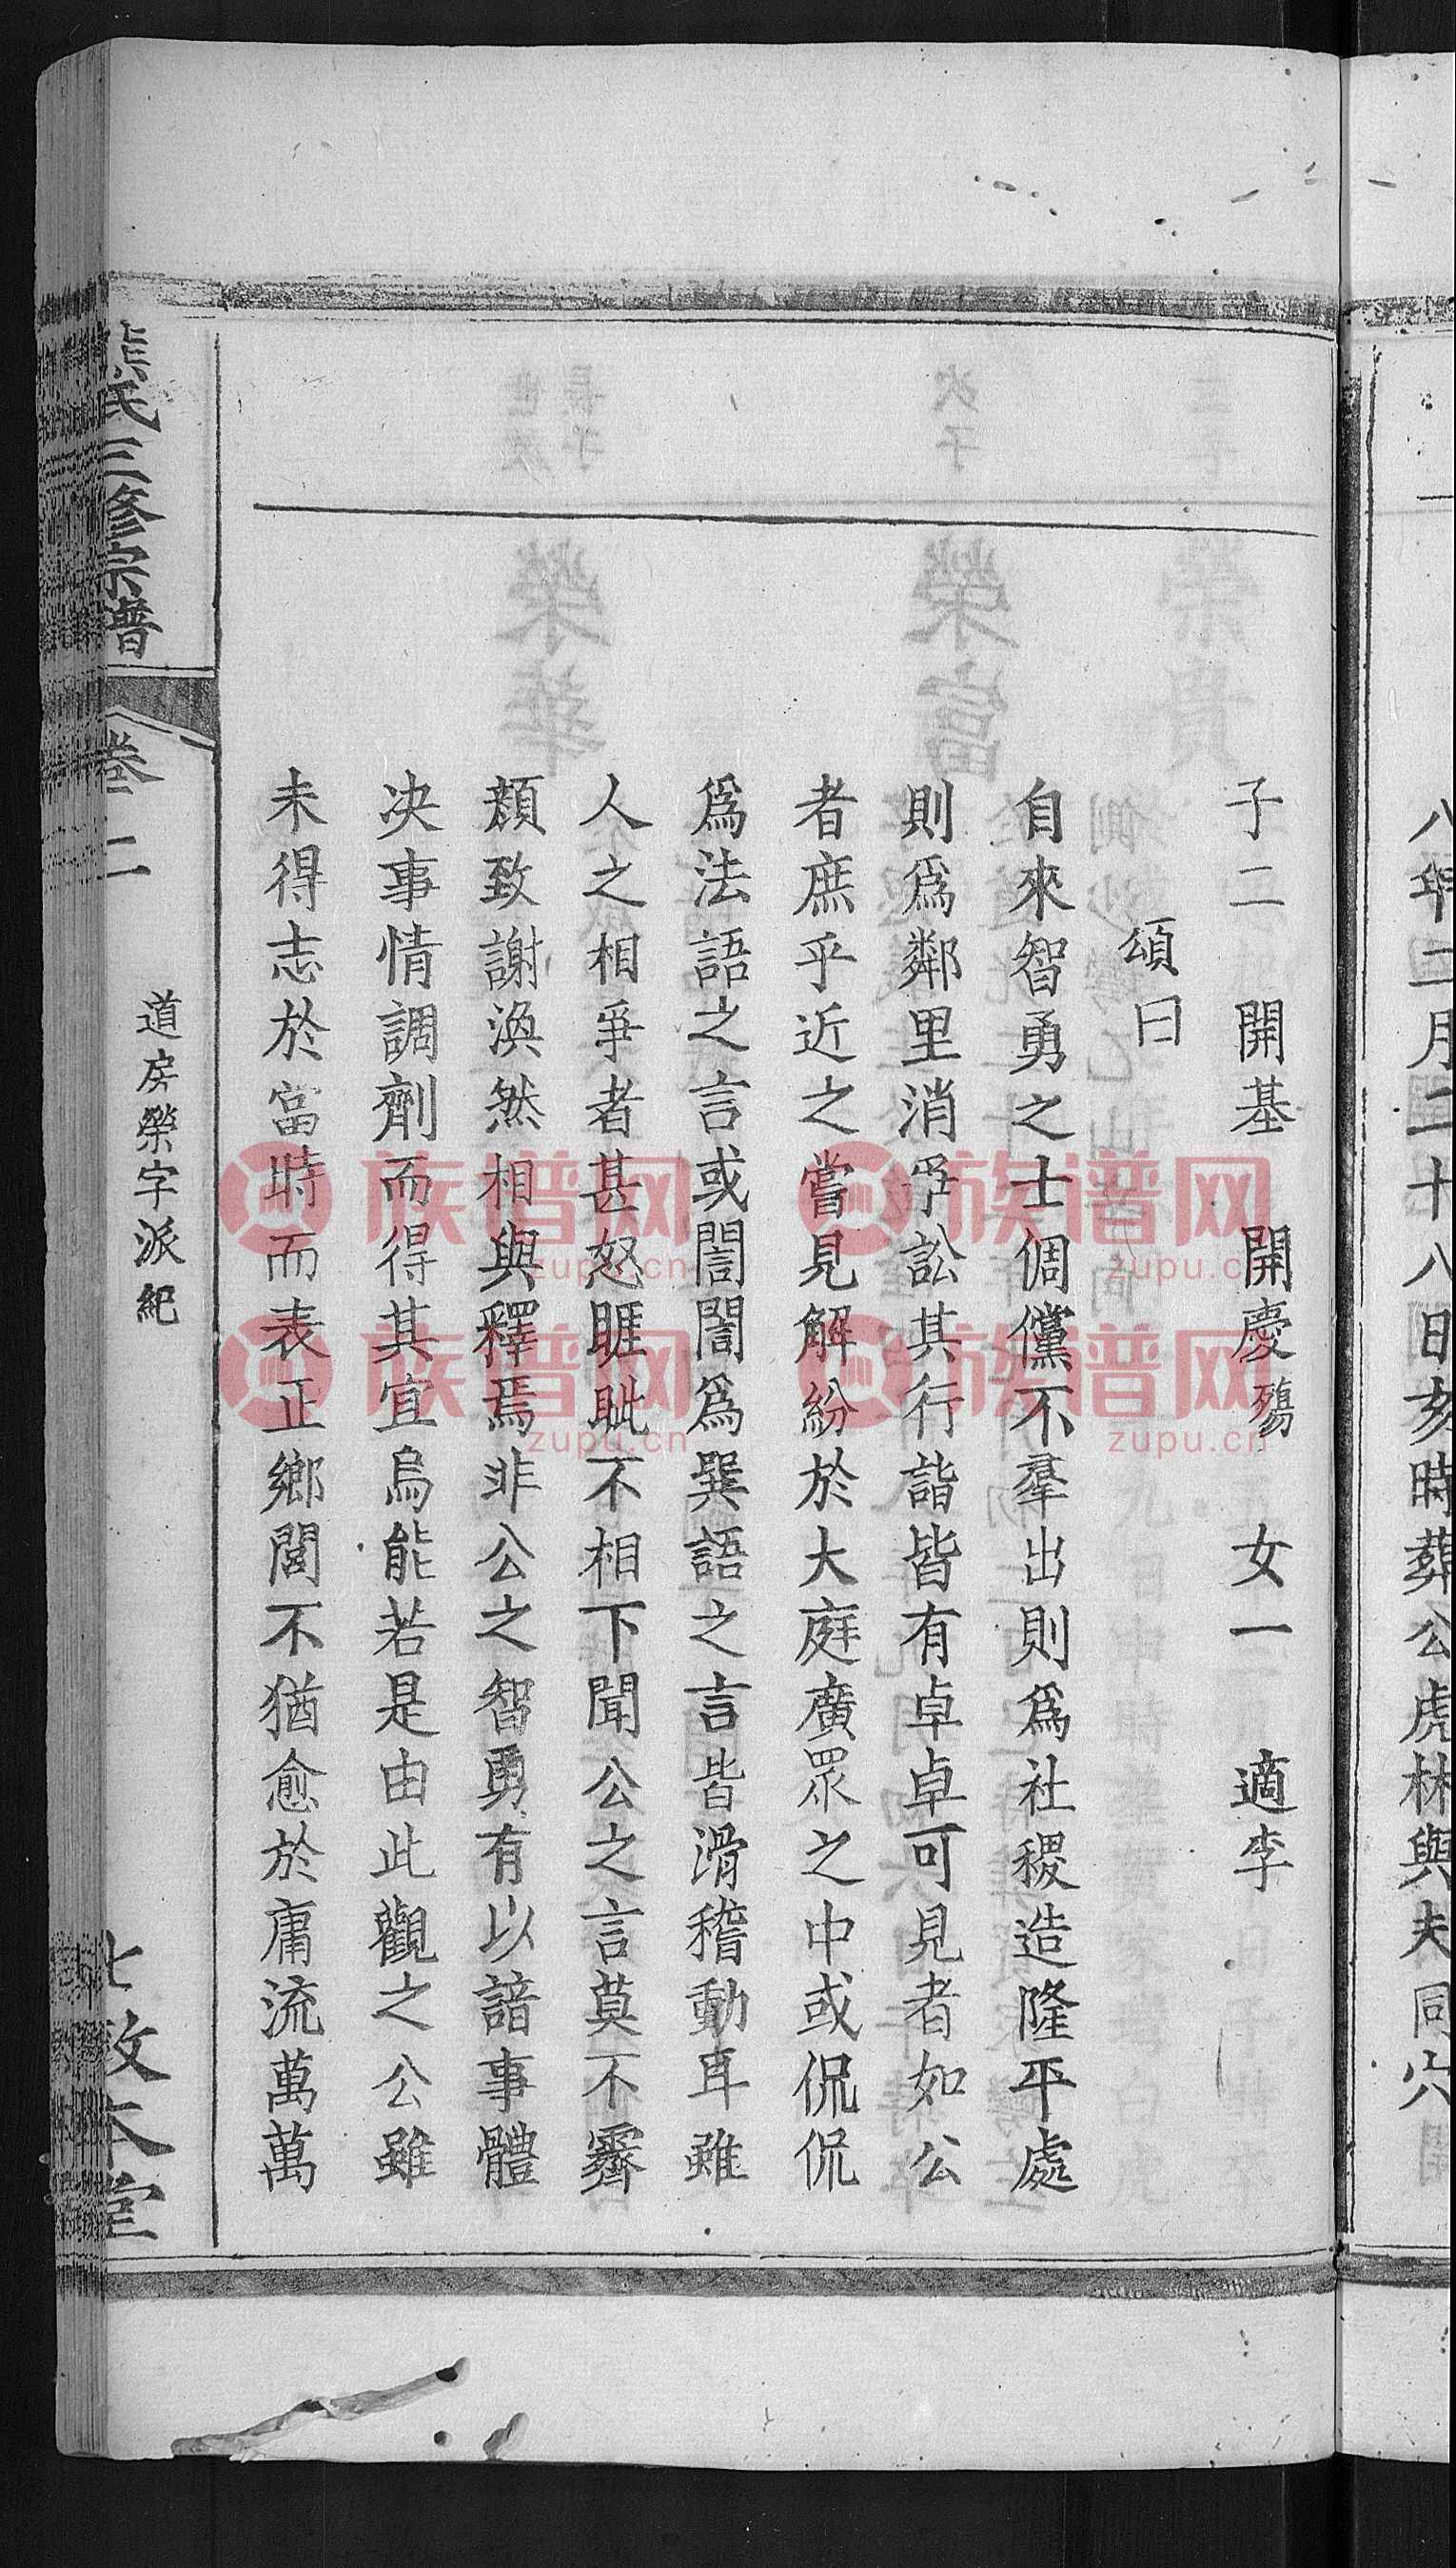 八年二月二十八日亥時葬公虎林與夫同穴
子二 開基 開慶殤 女一 適李
頌曰
自來智勇之士倜儻不羣出則爲社稷造隆平處
則爲鄰里消爭訟其行詣皆有卓卓可見者如公
者庶乎近之嘗見解紛於大庭廣眾之中或侃侃
爲法語之言或誾誾爲巽語之言皆滑稽動耳雖
人之相爭者甚怒睚眦不相下聞公之言莫不霽
顏致謝渙然相與釋焉非公之智勇有以諳事體
决事情調劑而得其宜烏能若是由此觀之公雖
未得志於當時而表正鄉閭不猶愈於庸流萬萬
熊氏三修宗譜
卷二
道房榮字派紀
七 敦本堂
族谱网
zupu.cn
族谱网
zupu.cn
族谱网
zupu.cn
族谱网
zupu.cn